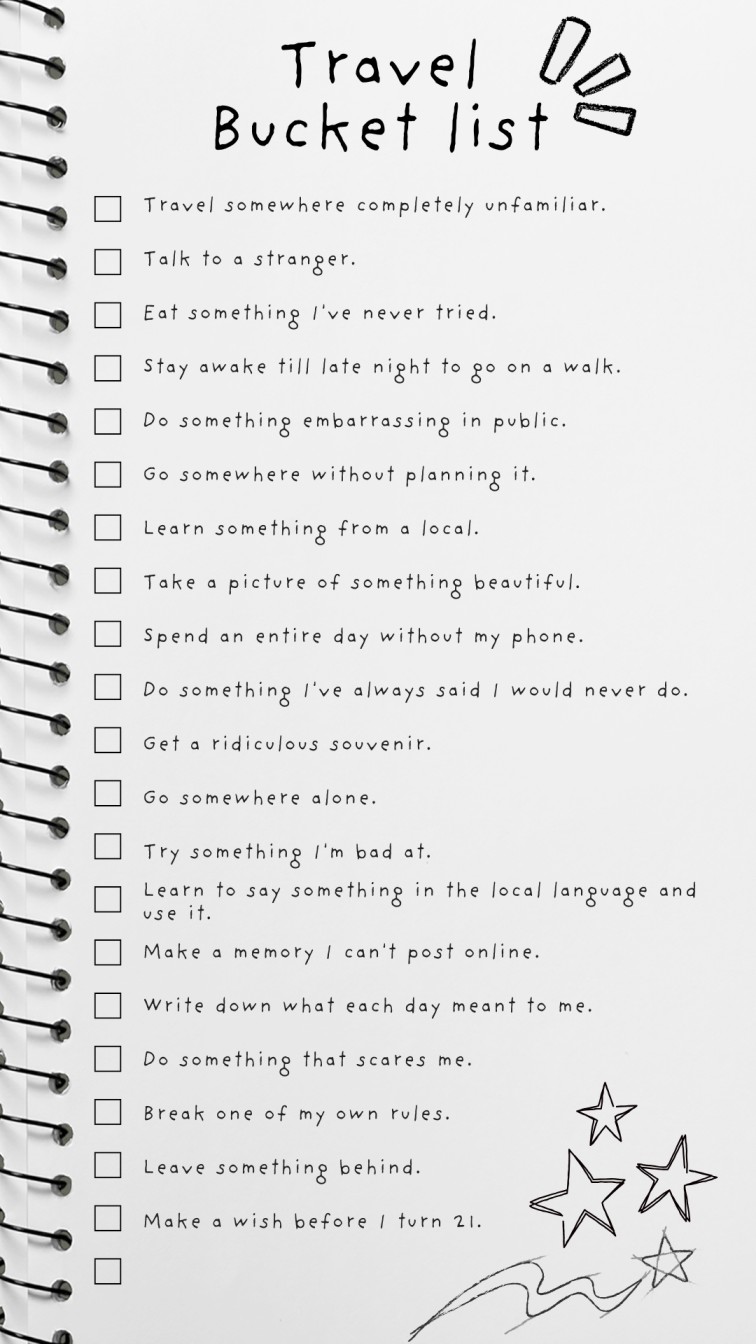 Travel
Bucket list
Travel somewhere completely unfamiliar.
Talk to a stranger.
Eat something I've never tried.
Stay awake till late night to go on a walk.
Do something embarrassing in public.
Go somewhere without planning it.
Learn something from a local.
Take a picture of something beautiful.
Spend an entire day without my phone.
Do something I've always said I would never do.
Get a ridiculous souvenir.
Go somewhere alone.
Try something I'm bad at.
Learn to say something in the local language and
use it.
Make a memory I can't post online.
Write down what each day meant to me.
Do something that scares me.
Break one of my own rules.
Leave something behind.
Make a wish before I turn 21.